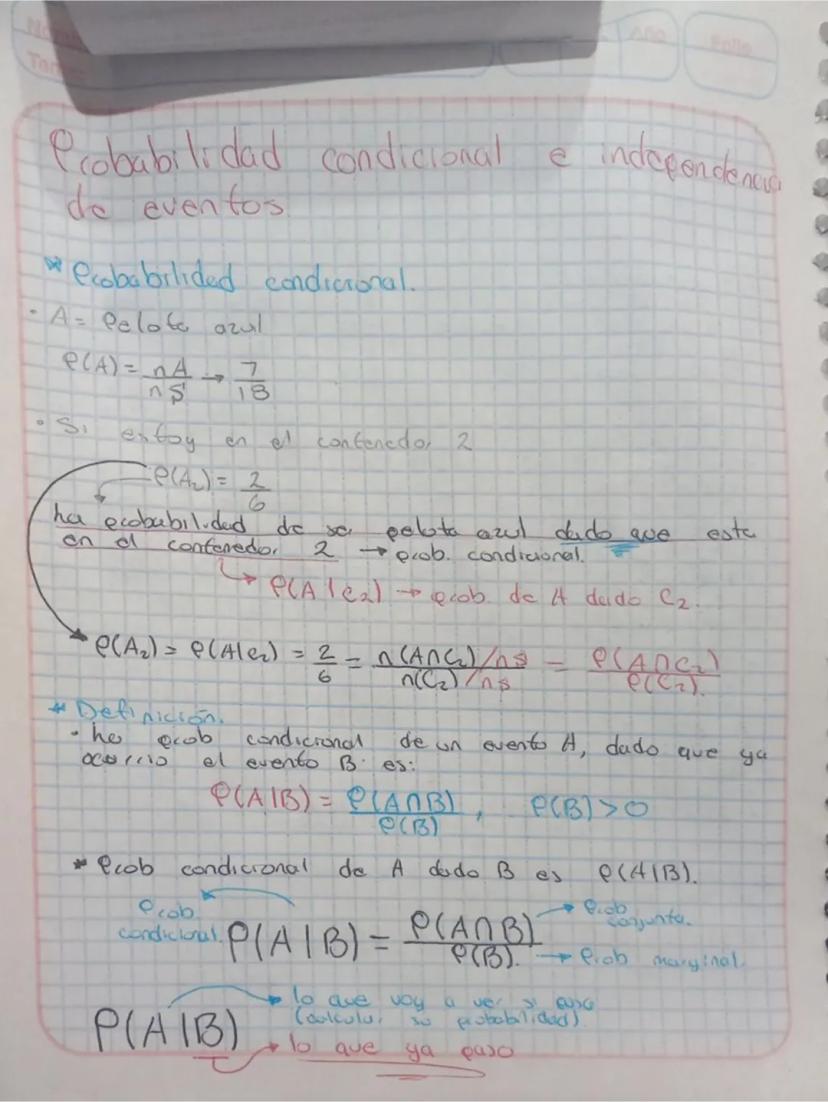 Año
Folio
Probabilidad condicional e independencia
de eventos
* Probabilidad condicional.
· A = Pelota azul
P(A) = nA/nS → 7/18
· Si estoy en el contenedor 2
P(A₂) = 2/6
La probabilidad de ser pelota azul dado que este
en el contenedor 2 → prob. condicional.
↳ P(A|C₂) → prob. de A dado C₂.
P(A₂) = P(A|C₂) = 2/6 = n(A∩C₂)/ns / n(C₂)/ns = P(A∩C₂)/P(C₂).
* Definición.
· La prob condicional de un evento A, dado que ya
ocurrio el evento B es:
P(A|B) = P(A∩B)/P(B), P(B) > 0
* Prob condicional de A dado B es P(A|B).
Prob condicional. P(A|B) = P(A∩B)/P(B).
→ Prob conjunta.
→ Prob marginal
P(A|B)
→ lo que voy a ver si pasa
(calcular su probabilidad)
→ lo que ya paso